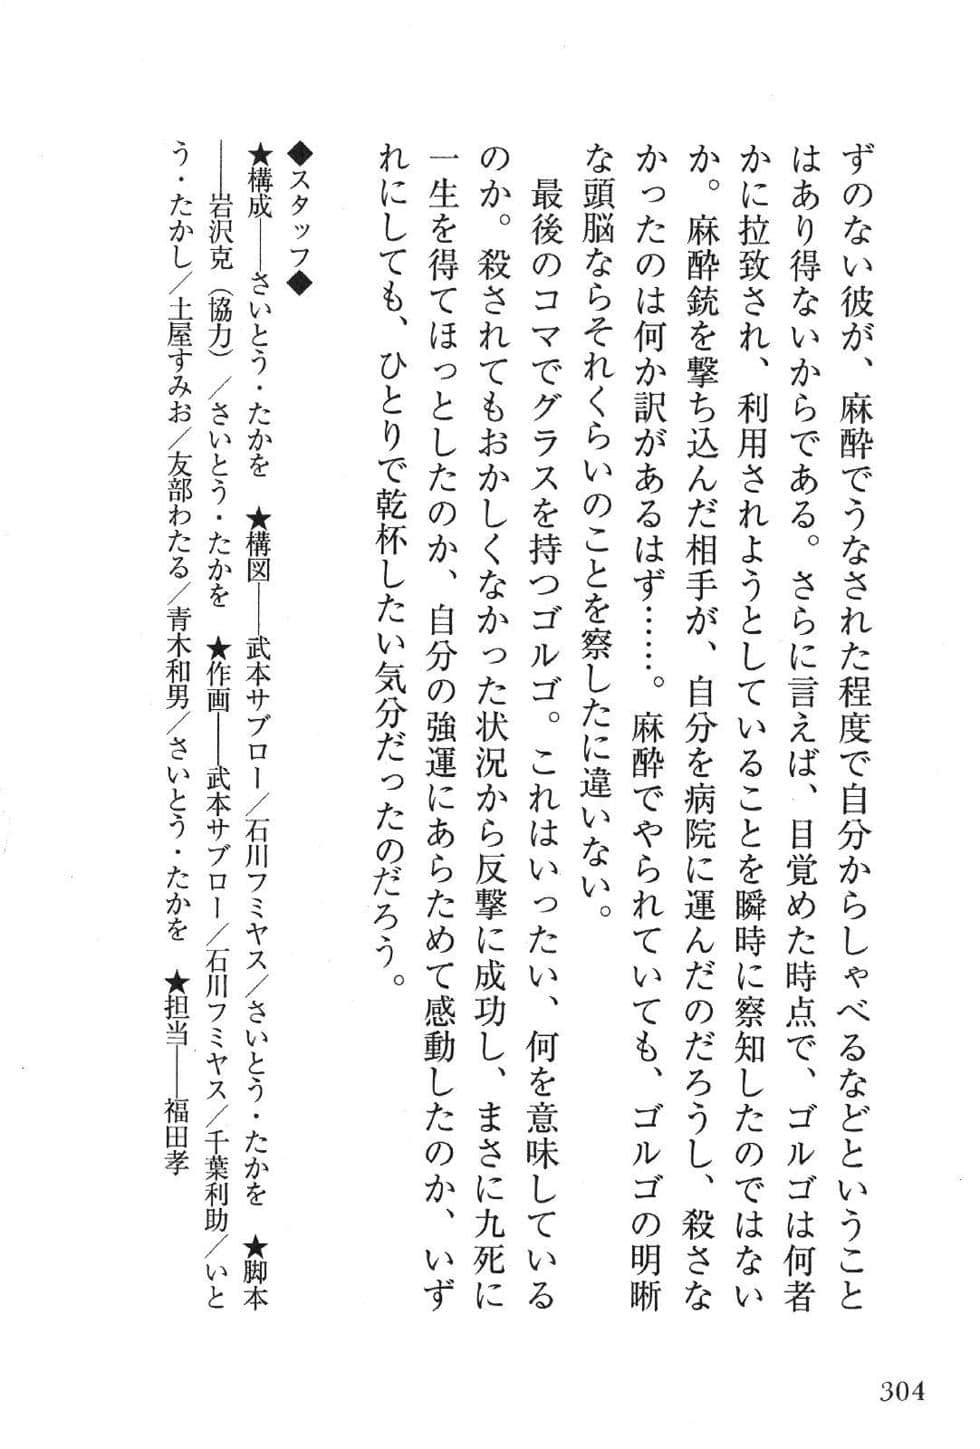 ずのない彼が、麻酔でうなされた程度で自分からしゃべるなどということ
はあり得ないからである。さらに言えば、目覚めた時点で、ゴルゴは何者
かに拉致され、利用されようとしていることを瞬時に察知したのではない
か。麻酔銃を撃ち込んだ相手が、自分を病院に運んだのだろうし、殺さな
かったのは何か訳があるはず……。麻酔でやられていても、ゴルゴの明晰
な頭脳ならそれくらいのことを察したに違いない。
　最後のコマでグラスを持つゴルゴ。これはいったい、何を意味している
のか。殺されてもおかしくなかった状況から反撃に成功し、まさに九死に
一生を得てほっとしたのか、自分の強運にあらためて感動したのか、いず
れにしても、ひとりで乾杯したい気分だったのだろう。
◆スタッフ◆
★構成——さいとう・たかを　★構図——武本サブロー／石川フミヤス／さいとう・たかを　★脚本
——岩沢克（協力）／さいとう・たかを　★作画——武本サブロー／石川フミヤス／千葉利助／いと
う・たかし／土屋すみお／友部わたる／青木和男／さいとう・たかを　★担当——福田孝
304